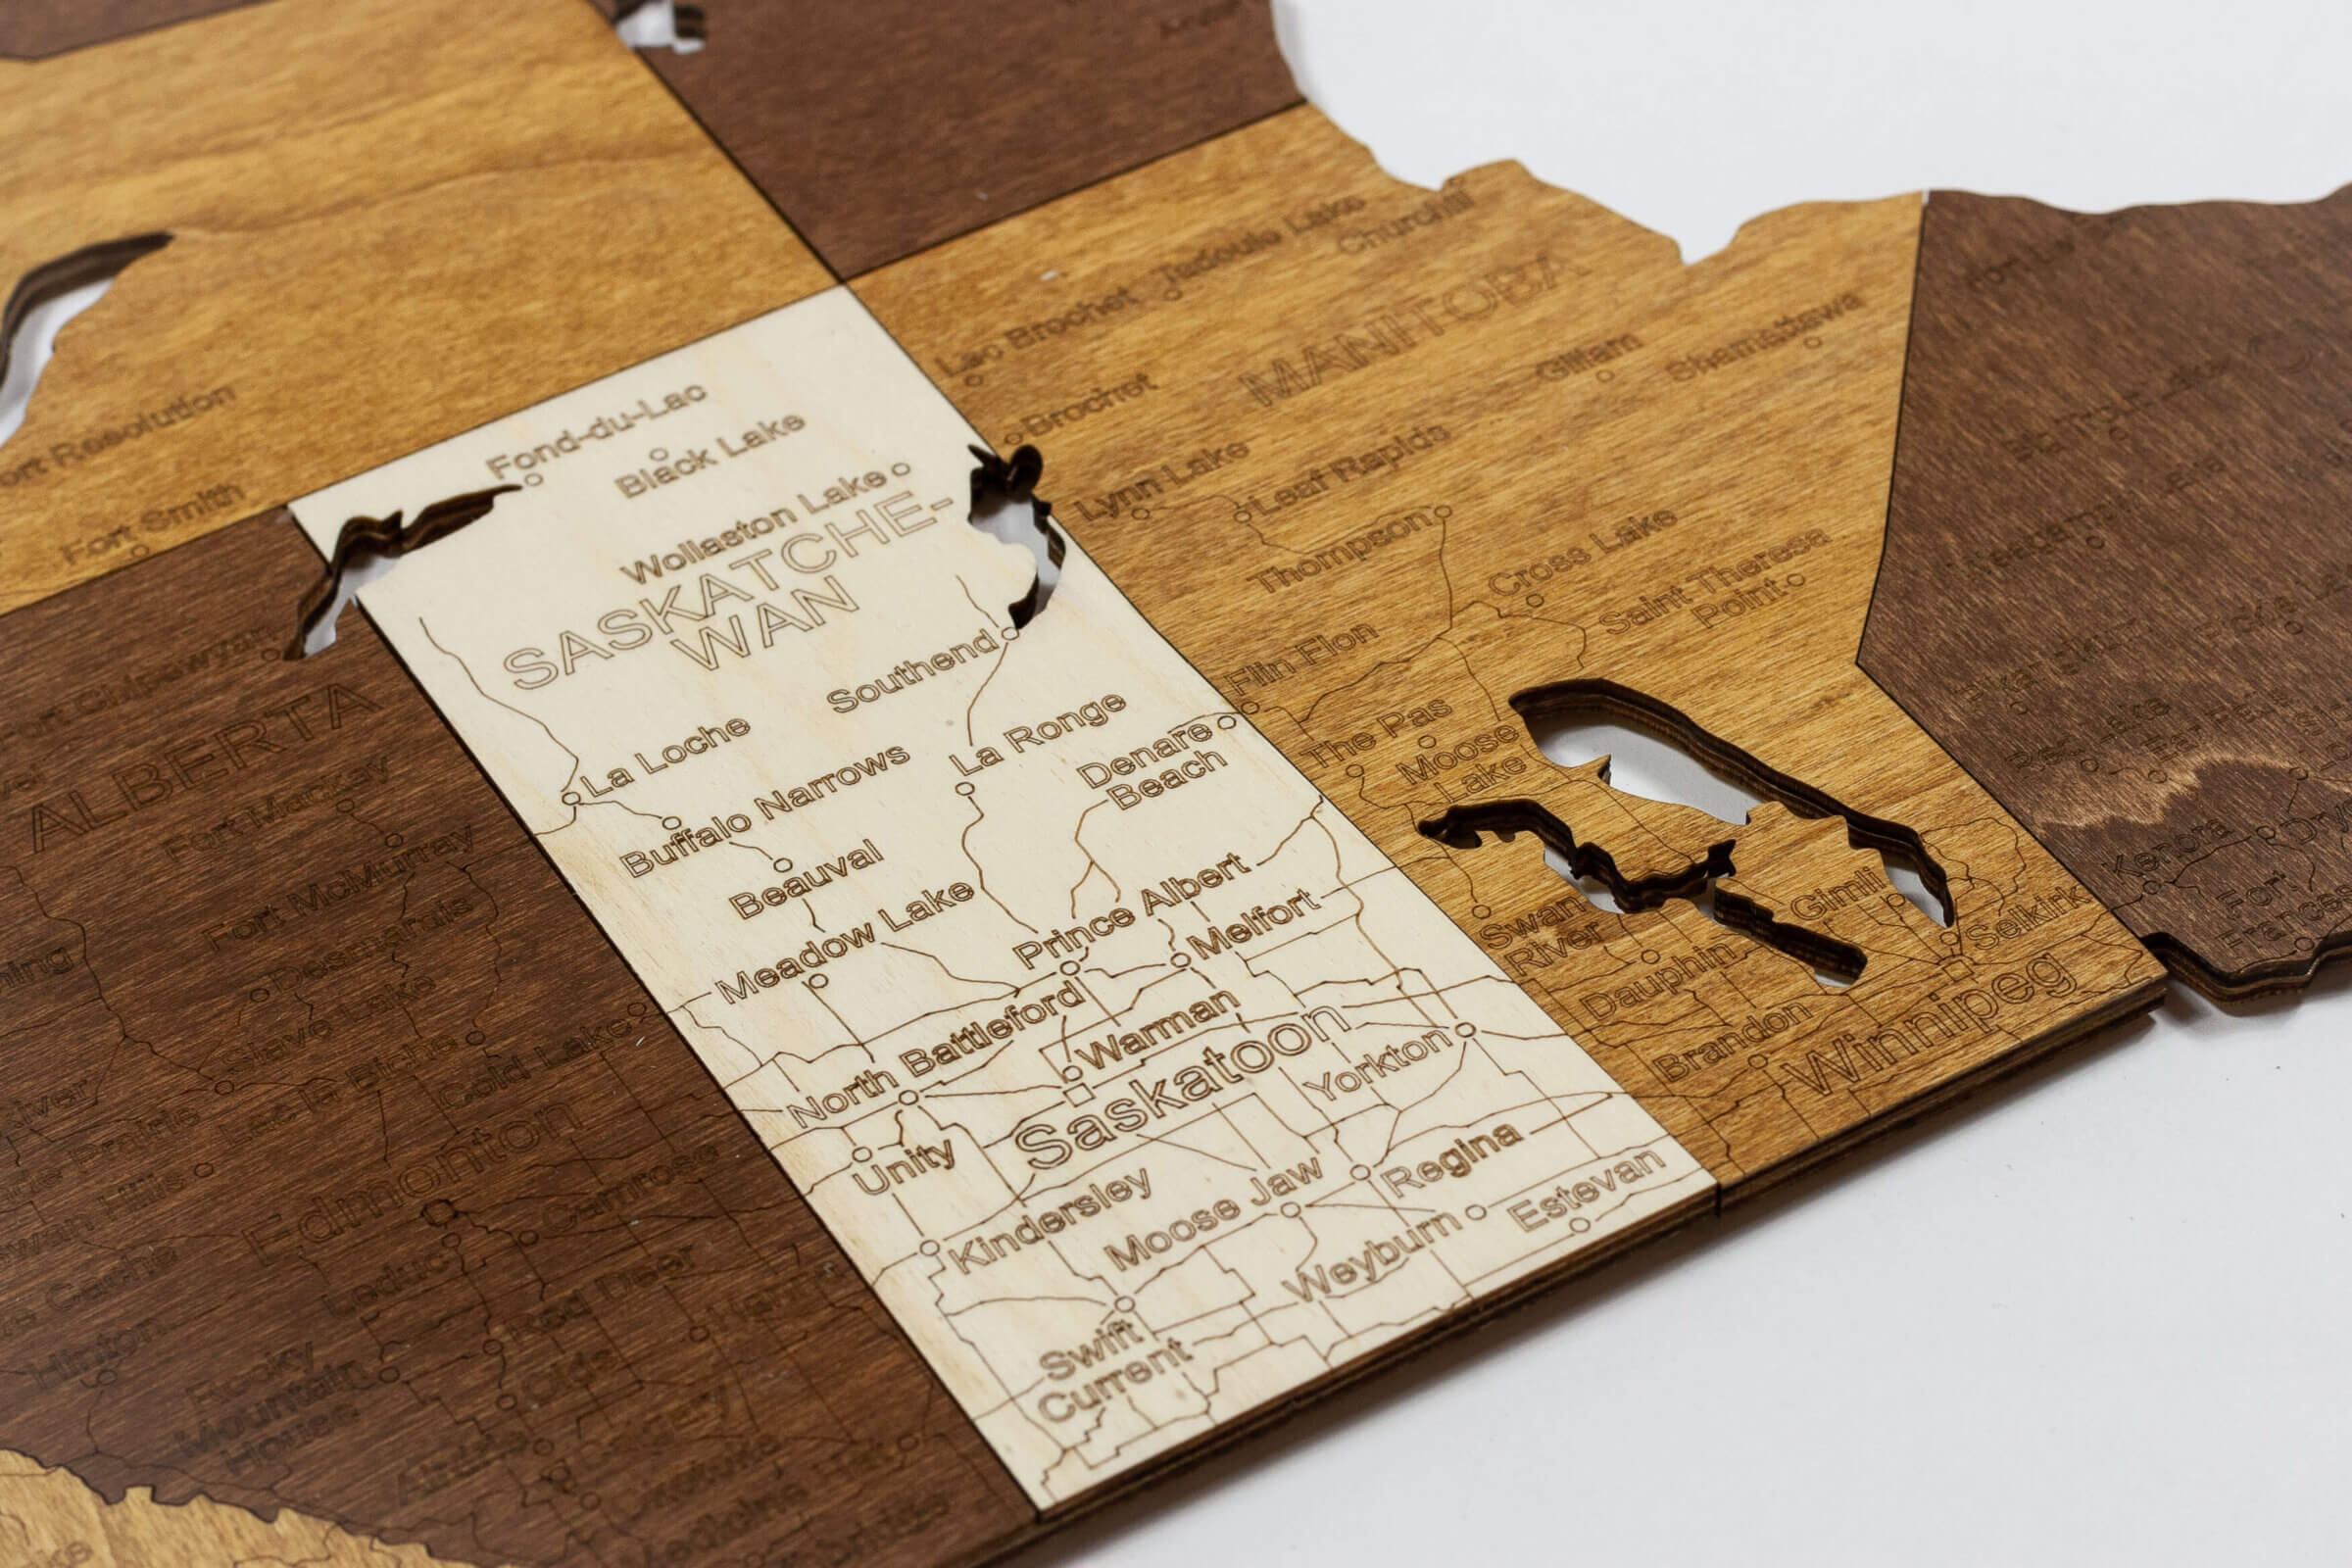 Fort Smith
ALBERTA
Fort Mackay
Fort McMurray
Slave Lake
Lac la Biche
Cold Lake
Edmonton
Camrose
Leduc
Red Deer
Hinton
Rocky
Mountain
House
Olds
Fond-du-Lac
Black Lake
Wollaston Lake
SASKATCHE-
WAN
Southend
La Loche
La Ronge
Buffalo Narrows
Denare
Beach
Beauval
Meadow Lake
Prince Albert
Melfort
North Battleford
Warman
Saskatoon
Yorkton
Unity
Kindersley
Regina
Moose Jaw
Weyburn
Estevan
Swift
Current
Churchill
Tadoule Lake
Lac Brochet
MANITOBA
Brochet
Gillam
Shamattawa
Lynn Lake
Leaf Rapids
Thompson
Cross Lake
Saint Theresa
Point
Flin Flon
The Pas
Moose
Lake
Swan
River
Dauphin
Gimli
Selkirk
Brandon
Winnipeg
Kenora
Fort